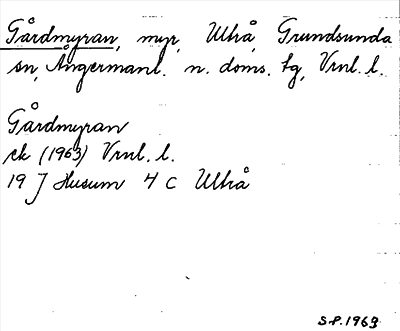 Gårdmyran, myr, Ultrå, Grundsunda
sn, Ångermanl. n. doms. tg, Vrnl. l.
Gårdmyran
ek (1963) Vrnl. l.
19 J Husum 4 C Ultrå
S.P. 1969